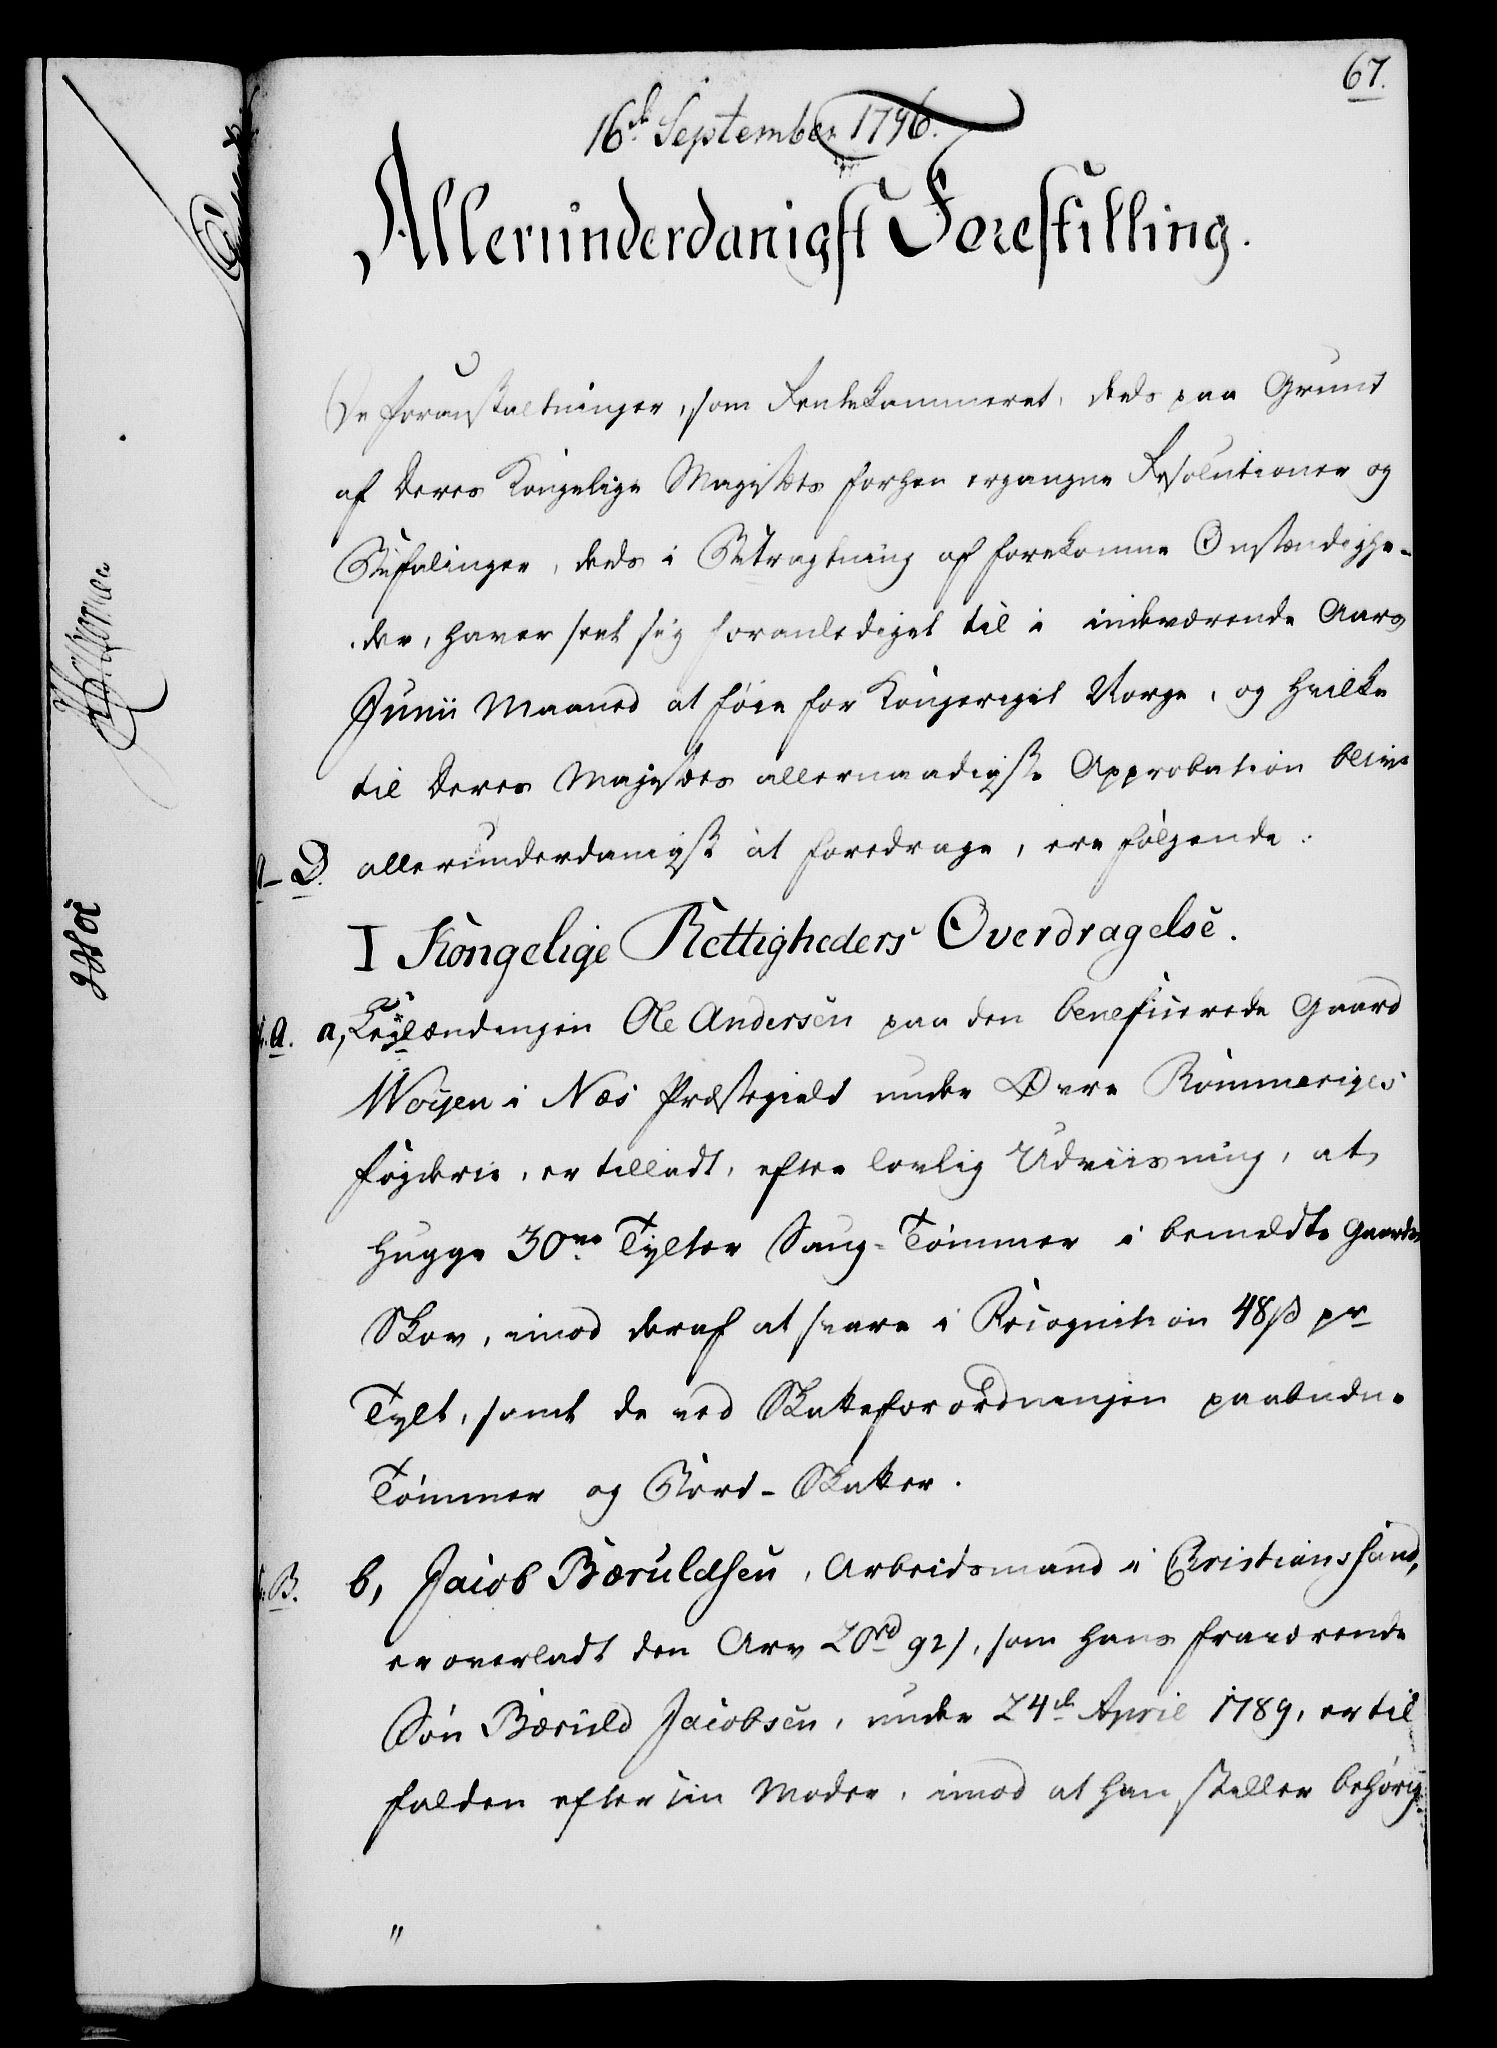 67.
16de September 1796.
Allerunderdanigst Forestilling.
De Foranstaltninger, som Rentekammeret, deels paa Grund
af Deres Kongelige Majestæts forhen ergangne Resolutioner og
Befalinger, deels i Betragtning af forekomne Omstændighe-
der, haver seet sig foranlediget til i indeværende Aars
Junii Maaned at føie for Kongeriget Norge, og hvilke
til Deres Majestæts allernaadigste Approbation blive
A-D. allerunderdanigst at foredrage, ere følgende:
I Kongelige Rettigheders Overdragelse.
A. a, Leylændingen Ole Andersen paa den beneficerede Gaard
Woyen i Næs Præstegield under Øvre Rommeriges
Fogderie, er tilladt, efter lovlig Udviisning, at
hugge 30ve Tylter Saug-Tømmer i bemeldte Gaards
Skov, imod deraf at svare i Recognition 48 ß pr
Tylt, samt de ved Skatteforordningen paabudne
Tømmer og Bord-Skatter.
B. b, Jacob Bæruldsen, Arbeidsmand i Christianssand,
er overladt den Arv 20rd 92 ß, som hans fraværende
Søn Bæruld Jacobsen, under 24de April 1789, er til
falden efter sin Moder, imod at han stiller behørig
"